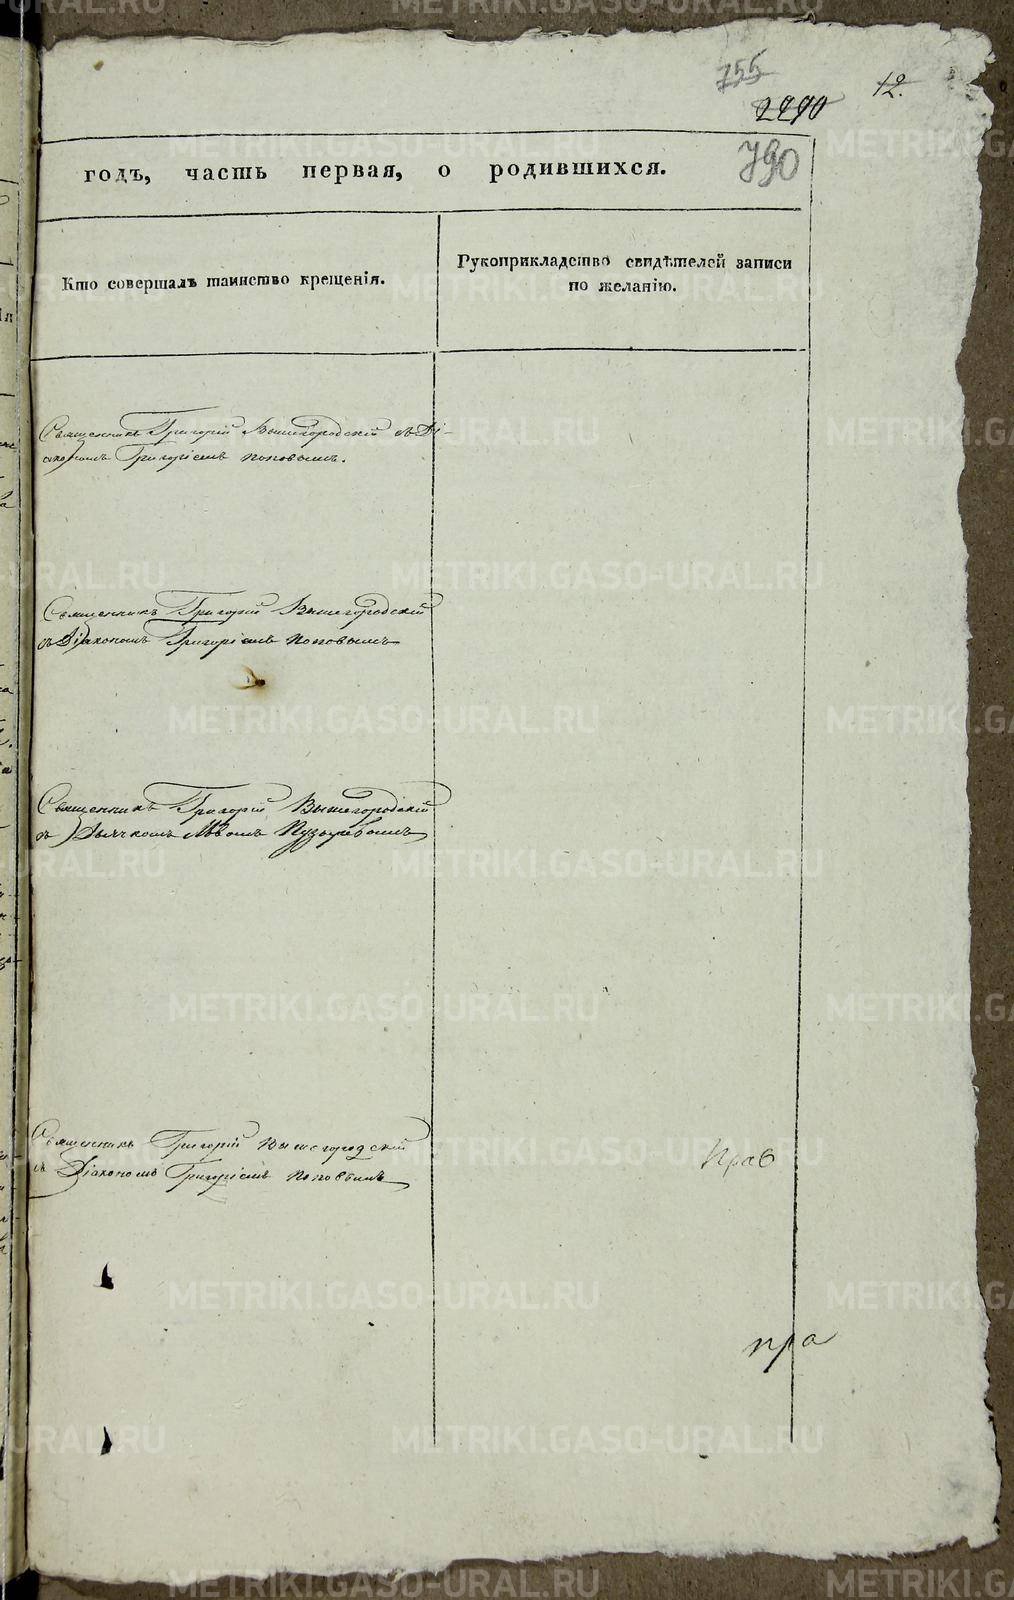 755
2290
12.
790
годъ, часть первая, о родившихся.
Кто совершалъ таинство крещенія.
Рукоприкладство свидѣтелей записи
по желанію.
Священникъ Григорій Вышегородскій съ Ді-
акономъ Григоріемъ Поповымъ.
Священникъ Григорій Вышегородскій
съ Діакономъ Григоріемъ Поповымъ
Священникъ Григорій Вышегородскій
съ Дьячкомъ Львомъ Пузыревымъ
Священникъ Григорій Вышегородскій
съ Діакономъ Григоріемъ Поповымъ
Прав
пра
METRIKI.GASO-URAL.RU